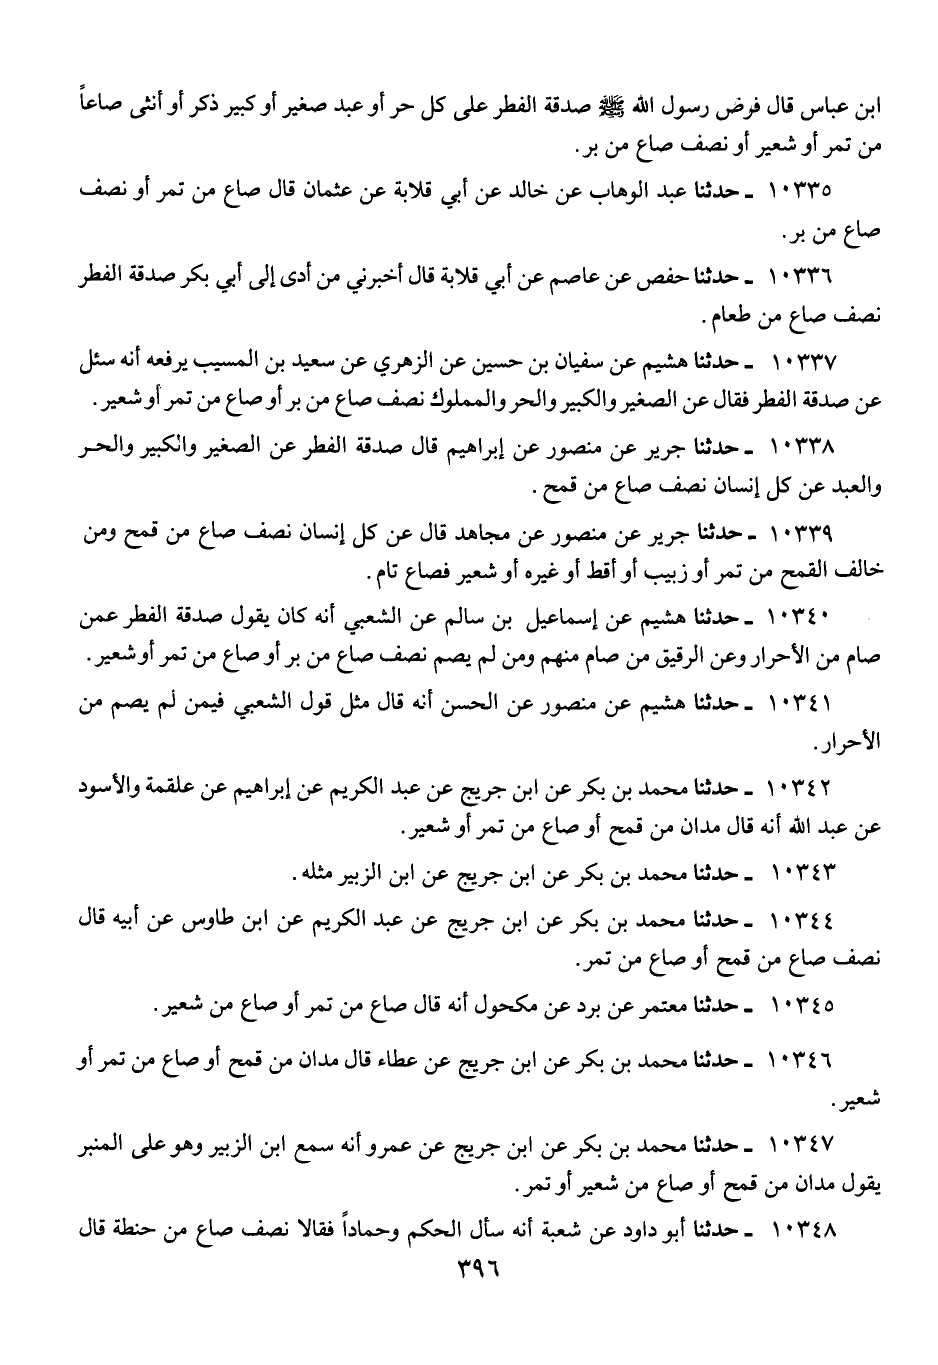 ابن عباس قال فرض رسول الله ﷺ صدقة الفطر على كل حر أو عبد صغير أو كبير ذكر أو أنثى صاعاً
من تمر أو شعير أو نصف صاع من بر.
١٠٣٣٥ ـ حدثنا عبد الوهاب عن خالد عن أبي قلابة عن عثمان قال صاع من تمر أو نصف
صاع من بر.
١٠٣٣٦ ـ حدثنا حفص عن عاصم عن أبي قلابة قال أخبرني من أدى إلى أبي بكر صدقة الفطر
نصف صاع من طعام.
١٠٣٣٧ ـ حدثنا هشيم عن سفيان بن حسين عن الزهري عن سعيد بن المسيب يرفعه أنه سئل
عن صدقة الفطر فقال عن الصغير والكبير والحر والمملوك نصف صاع من بر أو صاع من تمر أو شعير.
١٠٣٣٨ ـ حدثنا جرير عن منصور عن إبراهيم قال صدقة الفطر عن الصغير والكبير والحر
والعبد عن كل إنسان نصف صاع من قمح.
١٠٣٣٩ ـ حدثنا جرير عن منصور عن مجاهد قال عن كل إنسان نصف صاع من قمح ومن
خالف القمح من تمر أو زبيب أو أقط أو غيره أو شعير فصاع تام.
١٠٣٤٠ ـ حدثنا هشيم عن إسماعيل بن سالم عن الشعبي أنه كان يقول صدقة الفطر عمن
صام من الأحرار وعن الرقيق من صام منهم ومن لم يصم نصف صاع من بر أو صاع من تمر أو شعير.
١٠٣٤١ ـ حدثنا هشيم عن منصور عن الحسن أنه قال مثل قول الشعبي فيمن لم يصم من
الأحرار.
١٠٣٤٢ ـ حدثنا محمد بن بكر عن ابن جريج عن عبد الكريم عن إبراهيم عن علقمة والأسود
عن عبد الله أنه قال مدان من قمح أو صاع من تمر أو شعير.
١٠٣٤٣ ـ حدثنا محمد بن بكر عن ابن جريج عن ابن الزبير مثله.
١٠٣٤٤ ـ حدثنا محمد بن بكر عن ابن جريج عن عبد الكريم عن ابن طاوس عن أبيه قال
نصف صاع من قمح أو صاع من تمر.
١٠٣٤٥ ـ حدثنا معتمر عن برد عن مكحول أنه قال صاع من تمر أو صاع من شعير.
١٠٣٤٦ ـ حدثنا محمد بن بكر عن ابن جريج عن عطاء قال مدان من قمح أو صاع من تمر أو
شعير.
١٠٣٤٧ ـ حدثنا محمد بن بكر عن ابن جريج عن عمرو أنه سمع ابن الزبير وهو على المنبر
يقول مدان من قمح أو صاع من شعير أو تمر.
١٠٣٤٨ ـ حدثنا أبو داود عن شعبة أنه سأل الحكم وحماداً فقالا نصف صاع من حنطة قال
٣٩٦